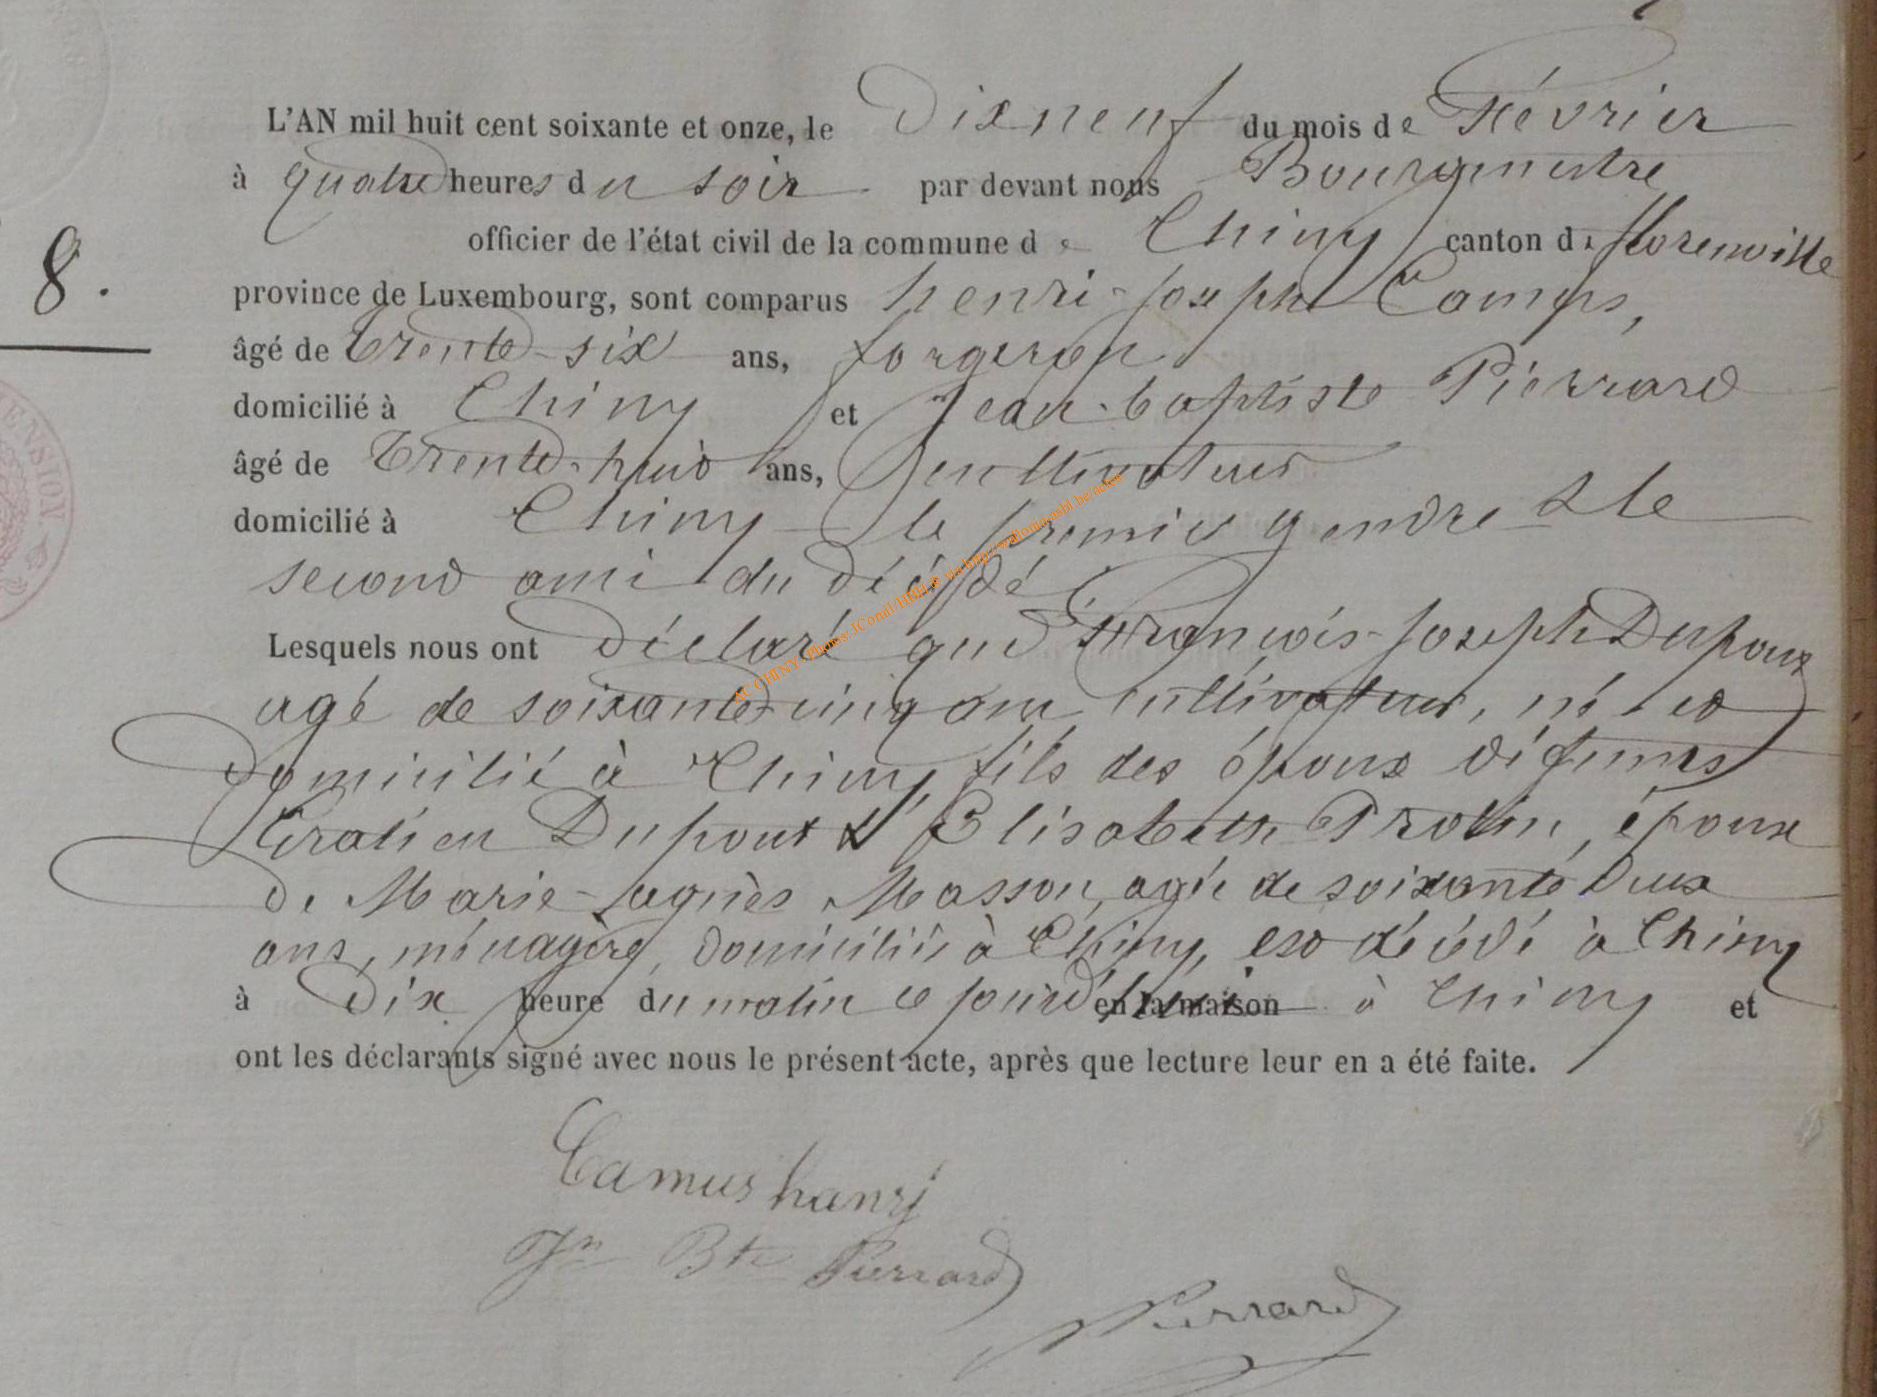 L'AN mil huit cent soixante et onze, le Dix neuf du mois de Février
à quatre heures du soir par devant nous Bourgmestre
officier de l'état civil de la commune de Chiny canton de florenville
8.
province de Luxembourg, sont comparus henri-Joseph Camus,
âgé de trente-six ans, forgeron
domicilié à Chiny et Jean-baptiste Pierrard
âgé de trente-huit ans, cultivateur
domicilié à Chiny le premier gendre & le
second ami du décédé
Lesquels nous ont déclaré que François-Joseph Dupont
agé de soixante-cinq ans cultivateur, né et
domicilié à Chiny, fils des époux défunts
Gratien Dupont & Elisabeth, époux
de Marie-agnès Masson, agée de soixante deux
ans, ménagère, domiciliée à Chiny, est décédé à Chiny
à Dix heure du matin ce jourd'hui en la maison à Chiny et
ont les déclarants signé avec nous le présent acte, après que lecture leur en a été faite.
Camus hanri
Jn Bte Pierrard
Pierrard
AC CHINY - Photos: JCornil
ENSION